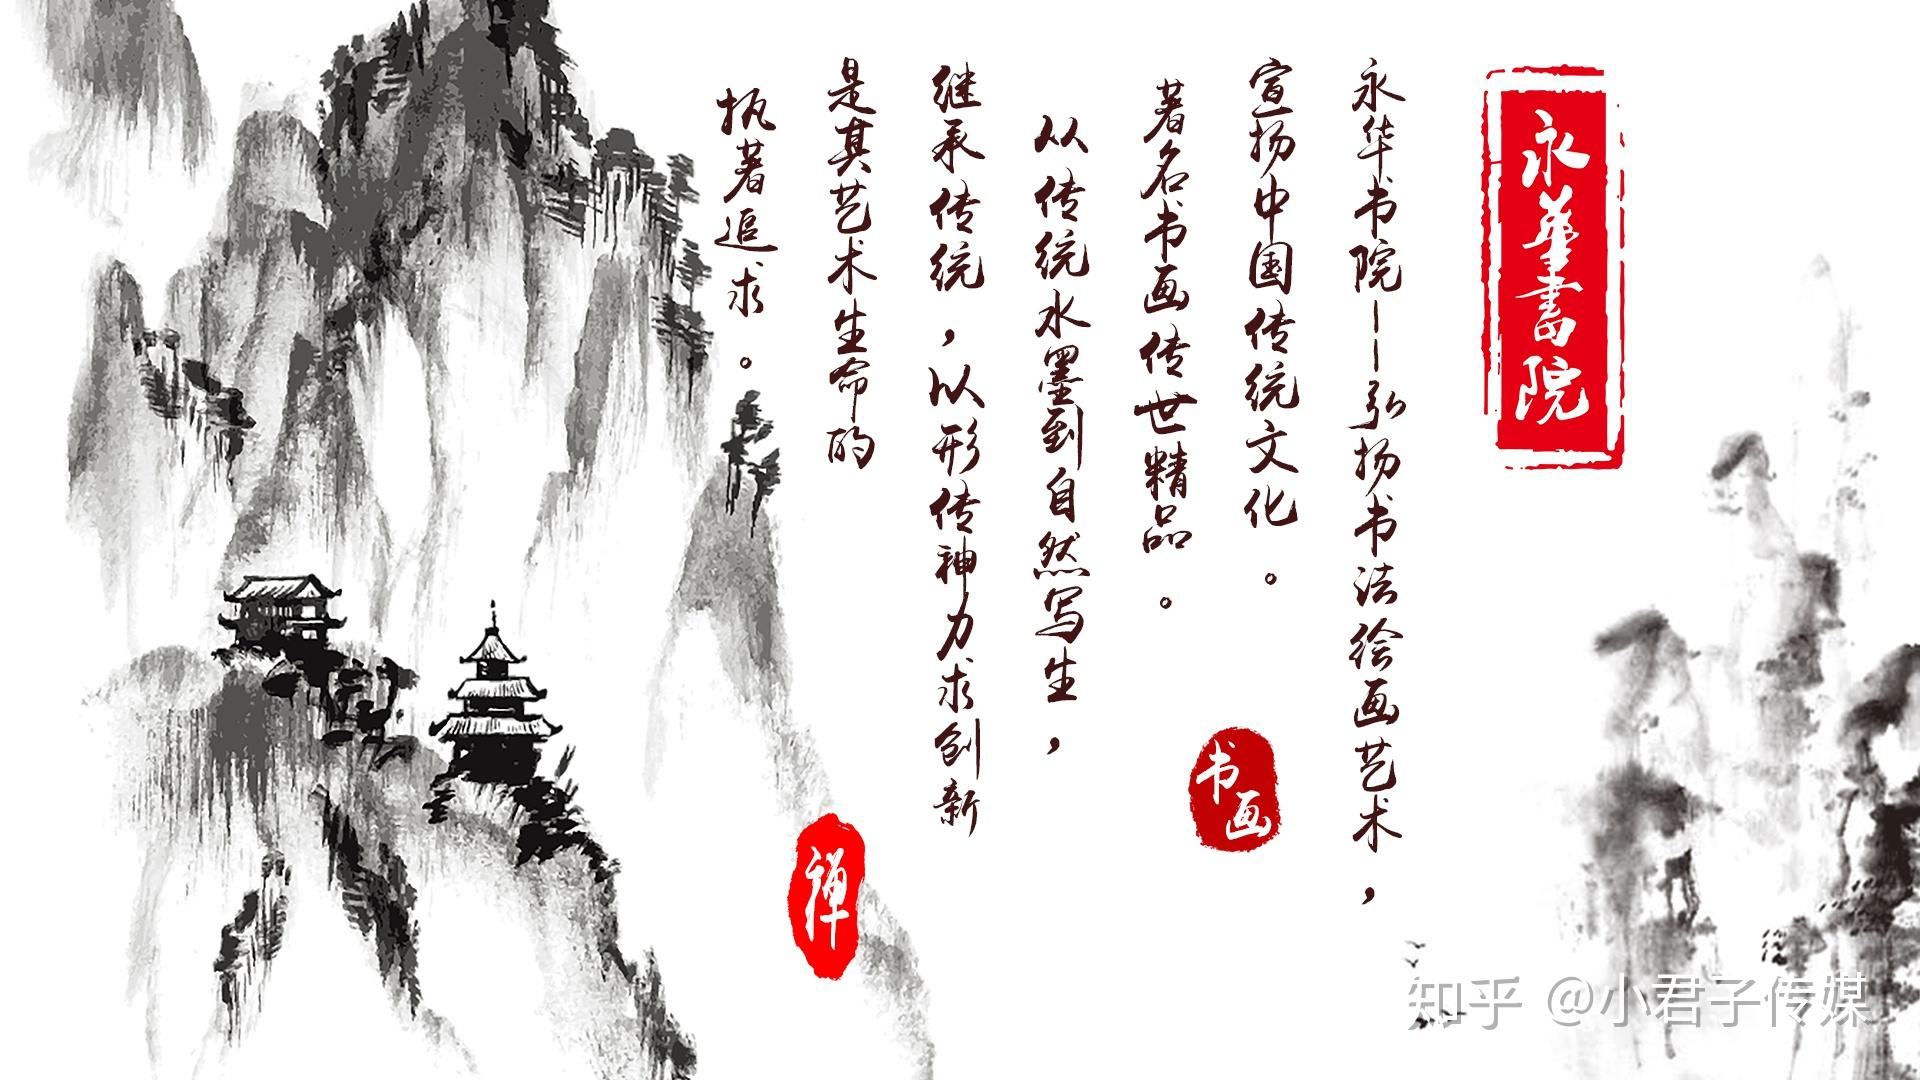 永華書院
永华书院——弘扬书法绘画艺术，
宣扬中国传统文化。
著名书画传世精品。
从传统水墨到自然写生，
继承传统，以形传神力求创新
是其艺术生命的
执著追求。
书画
禅
知乎 @小君子传媒